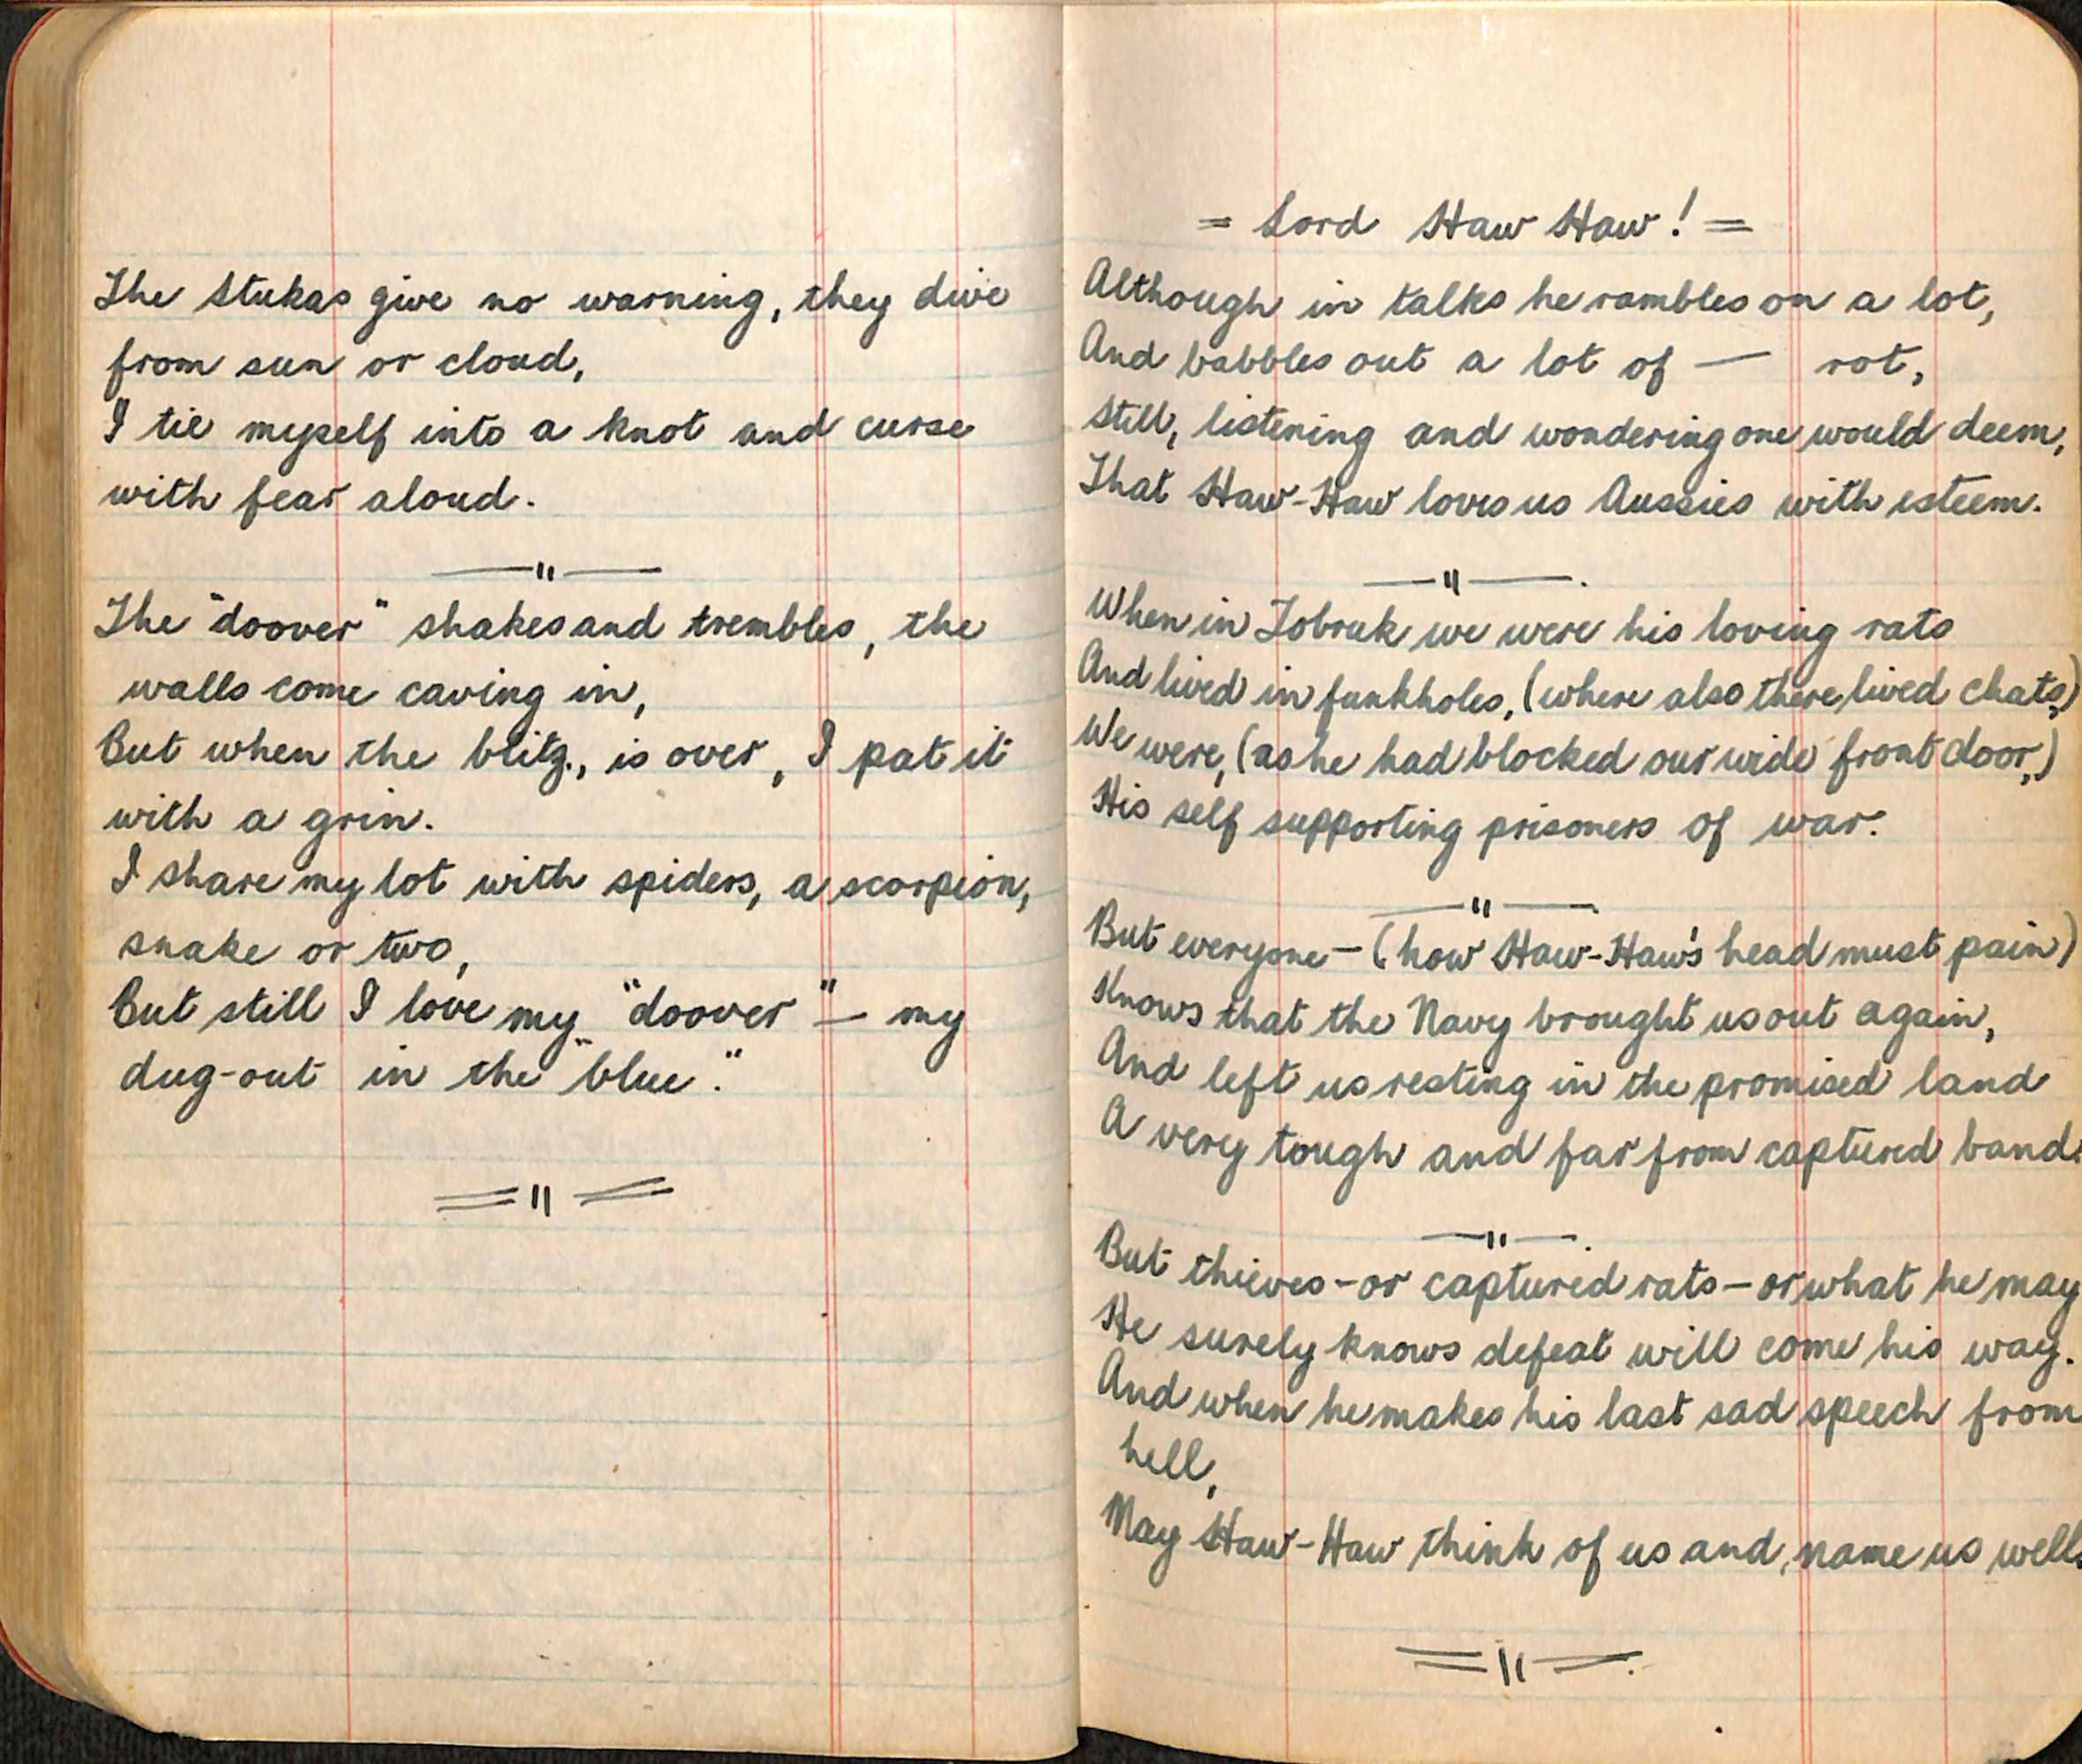 The Stukas give no warning, they dive
from sun or cloud,
I tie myself into a knot and curse
with fear aloud.
—"—
The "doover" shakes and trembles, the
walls come caving in,
But when the blitz., is over, I pat it
with a grin.
I share my lot with spiders, a scorpion,
snake or two,
But still I love my "doover" — my
dug-out in the "blue".
="=
= Lord Haw Haw! =
Although in talks he rambles on a lot,
And babbles out a lot of — rot,
Still, listening and wondering one would deem,
That Haw-Haw loves us Aussies with esteem.
—"—
When in Tobruk we were his loving rats
And lived in funkholes, (where also there lived chats,)
We were, (as he had blocked our wide front door,)
His self supporting prisoners of war.
—"—
But everyone — (how Haw-Haw's head must pain)
Knows that the Navy brought us out again,
And left us resting in the promised land
A very tough and far from captured band.
—"—
But thieves - or captured rats — or what he may
He surely knows defeat will come his way.
And when he makes his last sad speech from
hell,
May Haw-Haw think of us and name us well.
="=